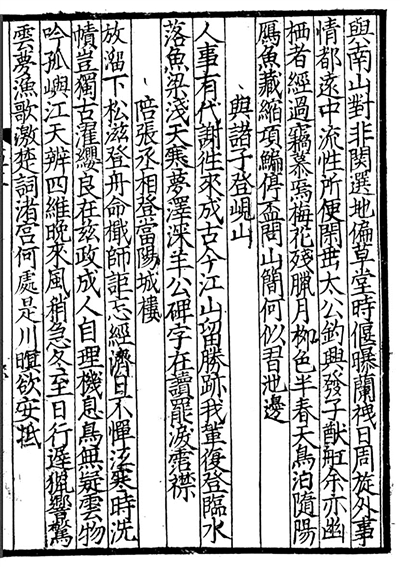 與南山對非関選地偏草堂時偃曝蘭栧日周旋外事
情都遠中流性所便閑垂太公釣興發子猷舡余亦幽
栖者經過竊慕焉梅花殘臘月柳色半春天鳥泊隨陽
鴈魚藏縮項鯿停盃問山簡何似習池邊
與諸子登峴山
人事有代謝徃來成古今江山留勝跡我軰復登臨水
落魚梁淺天寒夢澤深羊公碑字在讀罷淚霑襟
陪張丞相登當陽城樓
放溜下松滋登舟命檝師詎忘經濟日不憚沍寒時洗
幘豈獨古濯纓良在兹政成人自理機息鳥無疑雲物
吟孤嶼江天辨四維晚來風稍急冬至日行遲獵響驚
雲夢漁歌激楚詞渚宫何處是川暝欲安抵